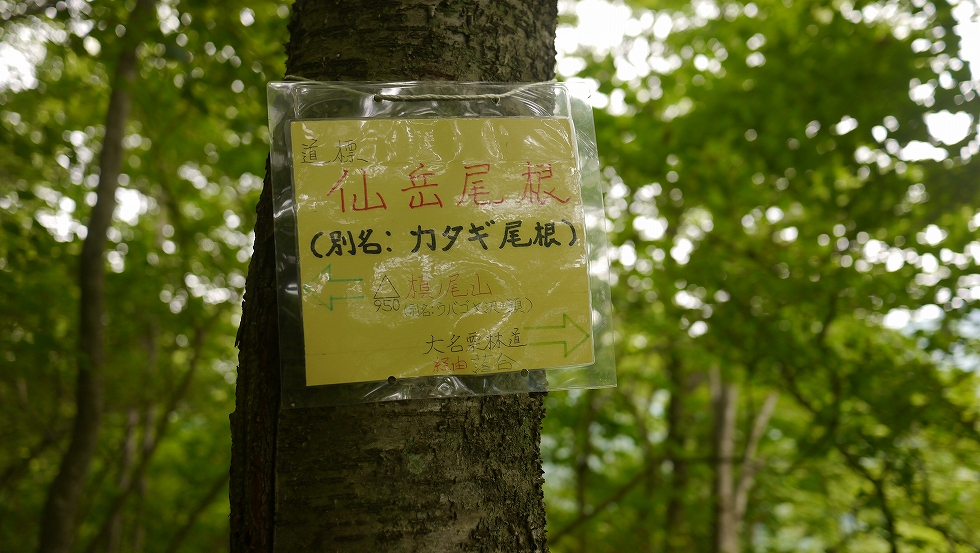 道標
仙岳尾根
(別名:カタギ尾根)
△ 槙ノ尾山
950
大名栗林道
経由 落合